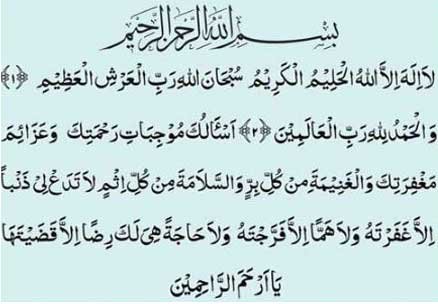 بِسْمِ اللهِ الرَّحْمٰنِ الرَّحِيْمِ
لَا اِلٰهَ اِلاَّ اللهُ الْحَلِيْمُ الْكَرِيْمُ سُبْحَانَ اللهِ رَبِّ الْعَرْشِ الْعَظِيْمِ ﴿١﴾
وَالْحَمْدُ لِلهِ رَبِّ الْعَالَمِيْنَ ﴿٢﴾ اَسْأَلُكَ مُوْجِبَاتِ رَحْمَتِكَ وَعَزَائِمَ
مَغْفِرَتِكَ وَالْغَنِيْمَةَ مِنْ كُلِّ بِرٍّ وَالسَّلَامَةَ مِنْ كُلِّ اِثْمٍ لَا تَدَعْ لِيْ ذَنْباً
اِلاَّ غَفَرْتَهُ وَلَا هَمًّا اِلاَّ فَرَّجْتَهُ وَلَا حَاجَةً هِىَ لَكَ رِضًا اِلاَّ قَضَيْتَهَا
يَا اَرْحَمَ الرَّاحِمِيْنَ